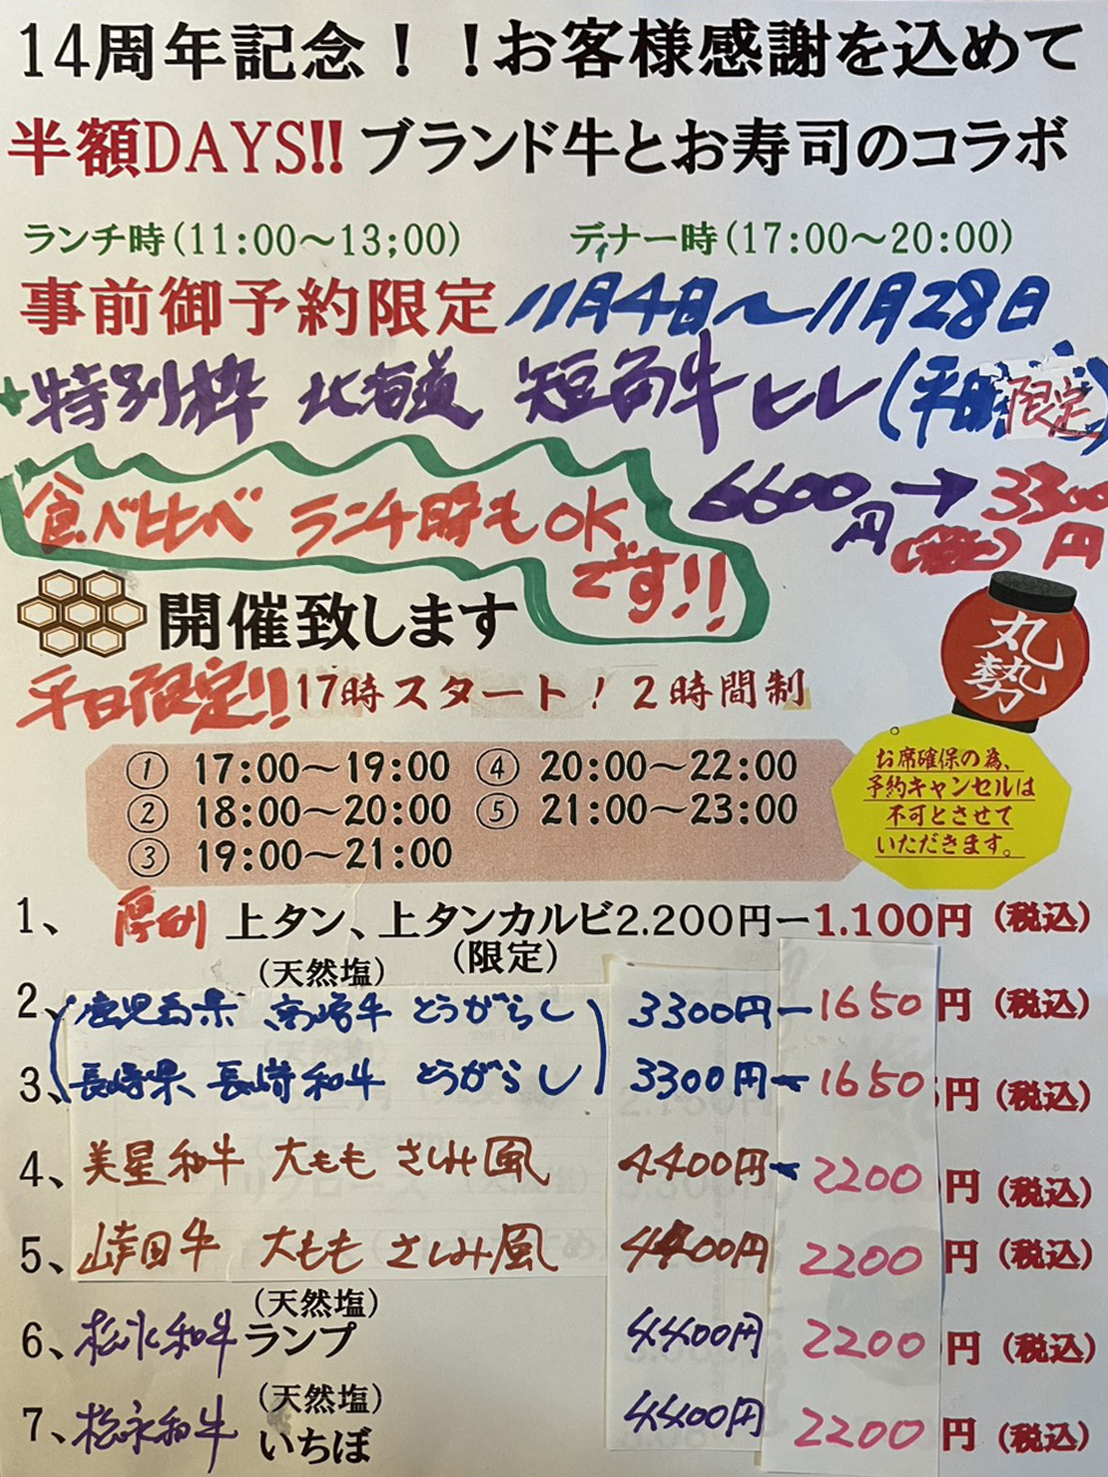 14周年記念！！お客様感謝を込めて
半額DAYS!! ブランド牛とお寿司のコラボ
ランチ時(11:00～13;00) ディナー時(17:00～20:00)
事前御予約限定 11月4日～11月28日
+特別枠 北海道 短角牛ヒレ(平日限定)
6600円→3300円(税込)
食べ比べ ランチ時もOKです!!
開催致します
丸勢
平日限定!! 17時スタート！2時間制
① 17:00～19:00 ④ 20:00～22:00
② 18:00～20:00 ⑤ 21:00～23:00
③ 19:00～21:00
お席確保の為、
予約キャンセルは
不可とさせて
いただきます。
1、厚切 上タン、上タンカルビ2.200円ー1.100円(税込)
(天然塩) (限定)
2、(鹿児島県 高崎牛 とうがらし) 3300円ー1650円(税込)
3、(長崎県 長崎和牛 とうがらし) 3300円ー1650円(税込)
4、美星和牛 大もも さしみ風 4400円ー2200円(税込)
5、峠田牛 大もも さしみ風 4400円 2200円(税込)
(天然塩)
6、松永和牛 ランプ 4400円 2200円(税込)
(天然塩)
7、松永和牛 いちぼ 4400円 2200円(税込)